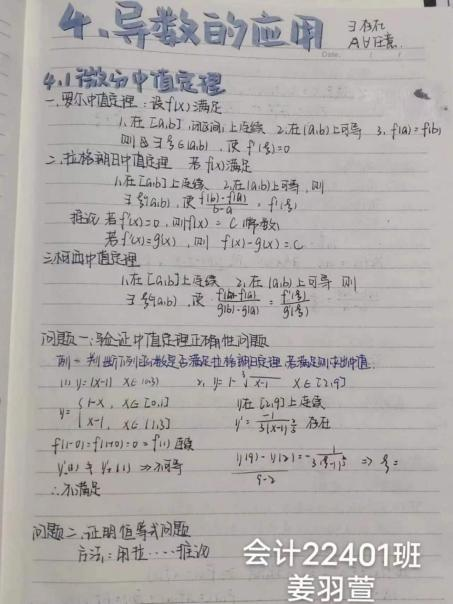 4、导数的应用
∃ 存在
A∀任意.
Date.
4.1微分中值定理
一.罗尔中值定理:设f(x)满足
1,在[a,b]闭区间上连续 2,在(a,b)上可导 3,f(a)=f(b)
则 ∃ξ∈(a,b), 使 f'(ξ)=0
二、拉格朗日中值定理 若f(x)满足
1,在[a,b]上连续 2,在(a,b)上可导,则
∃ξ(a,b),使 f(b)-f(a)/b-a = f'(ξ)
推论 若f'(x)=0,则f(x)=C(常数)
若f'(x)=g'(x),则 f(x)-g(x)=C
三.柯西中值定理
1,在[a,b]上连续 2,在(a,b)上可导 则
∃ξ(a,b),使 f(b)-f(a)/g(b)-g(a) = f'(ξ)/g'(ξ)
问题一:验证中值定理正确性问题
例一 判断下列函数是否满足拉格朗日定理 若满足则求出中值.
(1) y=|x-1| x∈[0,3] 2, y=1-∛x-1 x∈[2,9]
y={1-x, x∈[0,1] y在[2,9]上连续
x-1, x∈(1,3] y'= 存在
f(1-0)=f(1+0)=0=f(1) 连续
⇒不可导 y(9)-y(2)/9-2 ⇒ ξ=
∴不满足
问题二、证明恒等式问题
方法:用拉……推论
会计22401班
姜羽萱